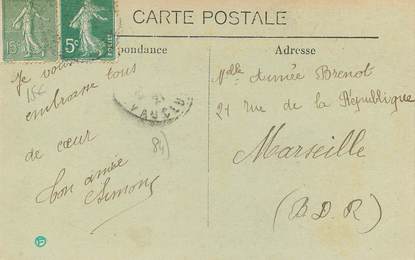 CARTE POSTALE
Correspondance
Adresse
15c
5c
POSTES
Je vous
15€
embrasse tous
de cœur
Ton amie
Simone
VAUCLU
84)
Melle Aimée Brenot
21 rue de la République
Marseille
(B. D. R)